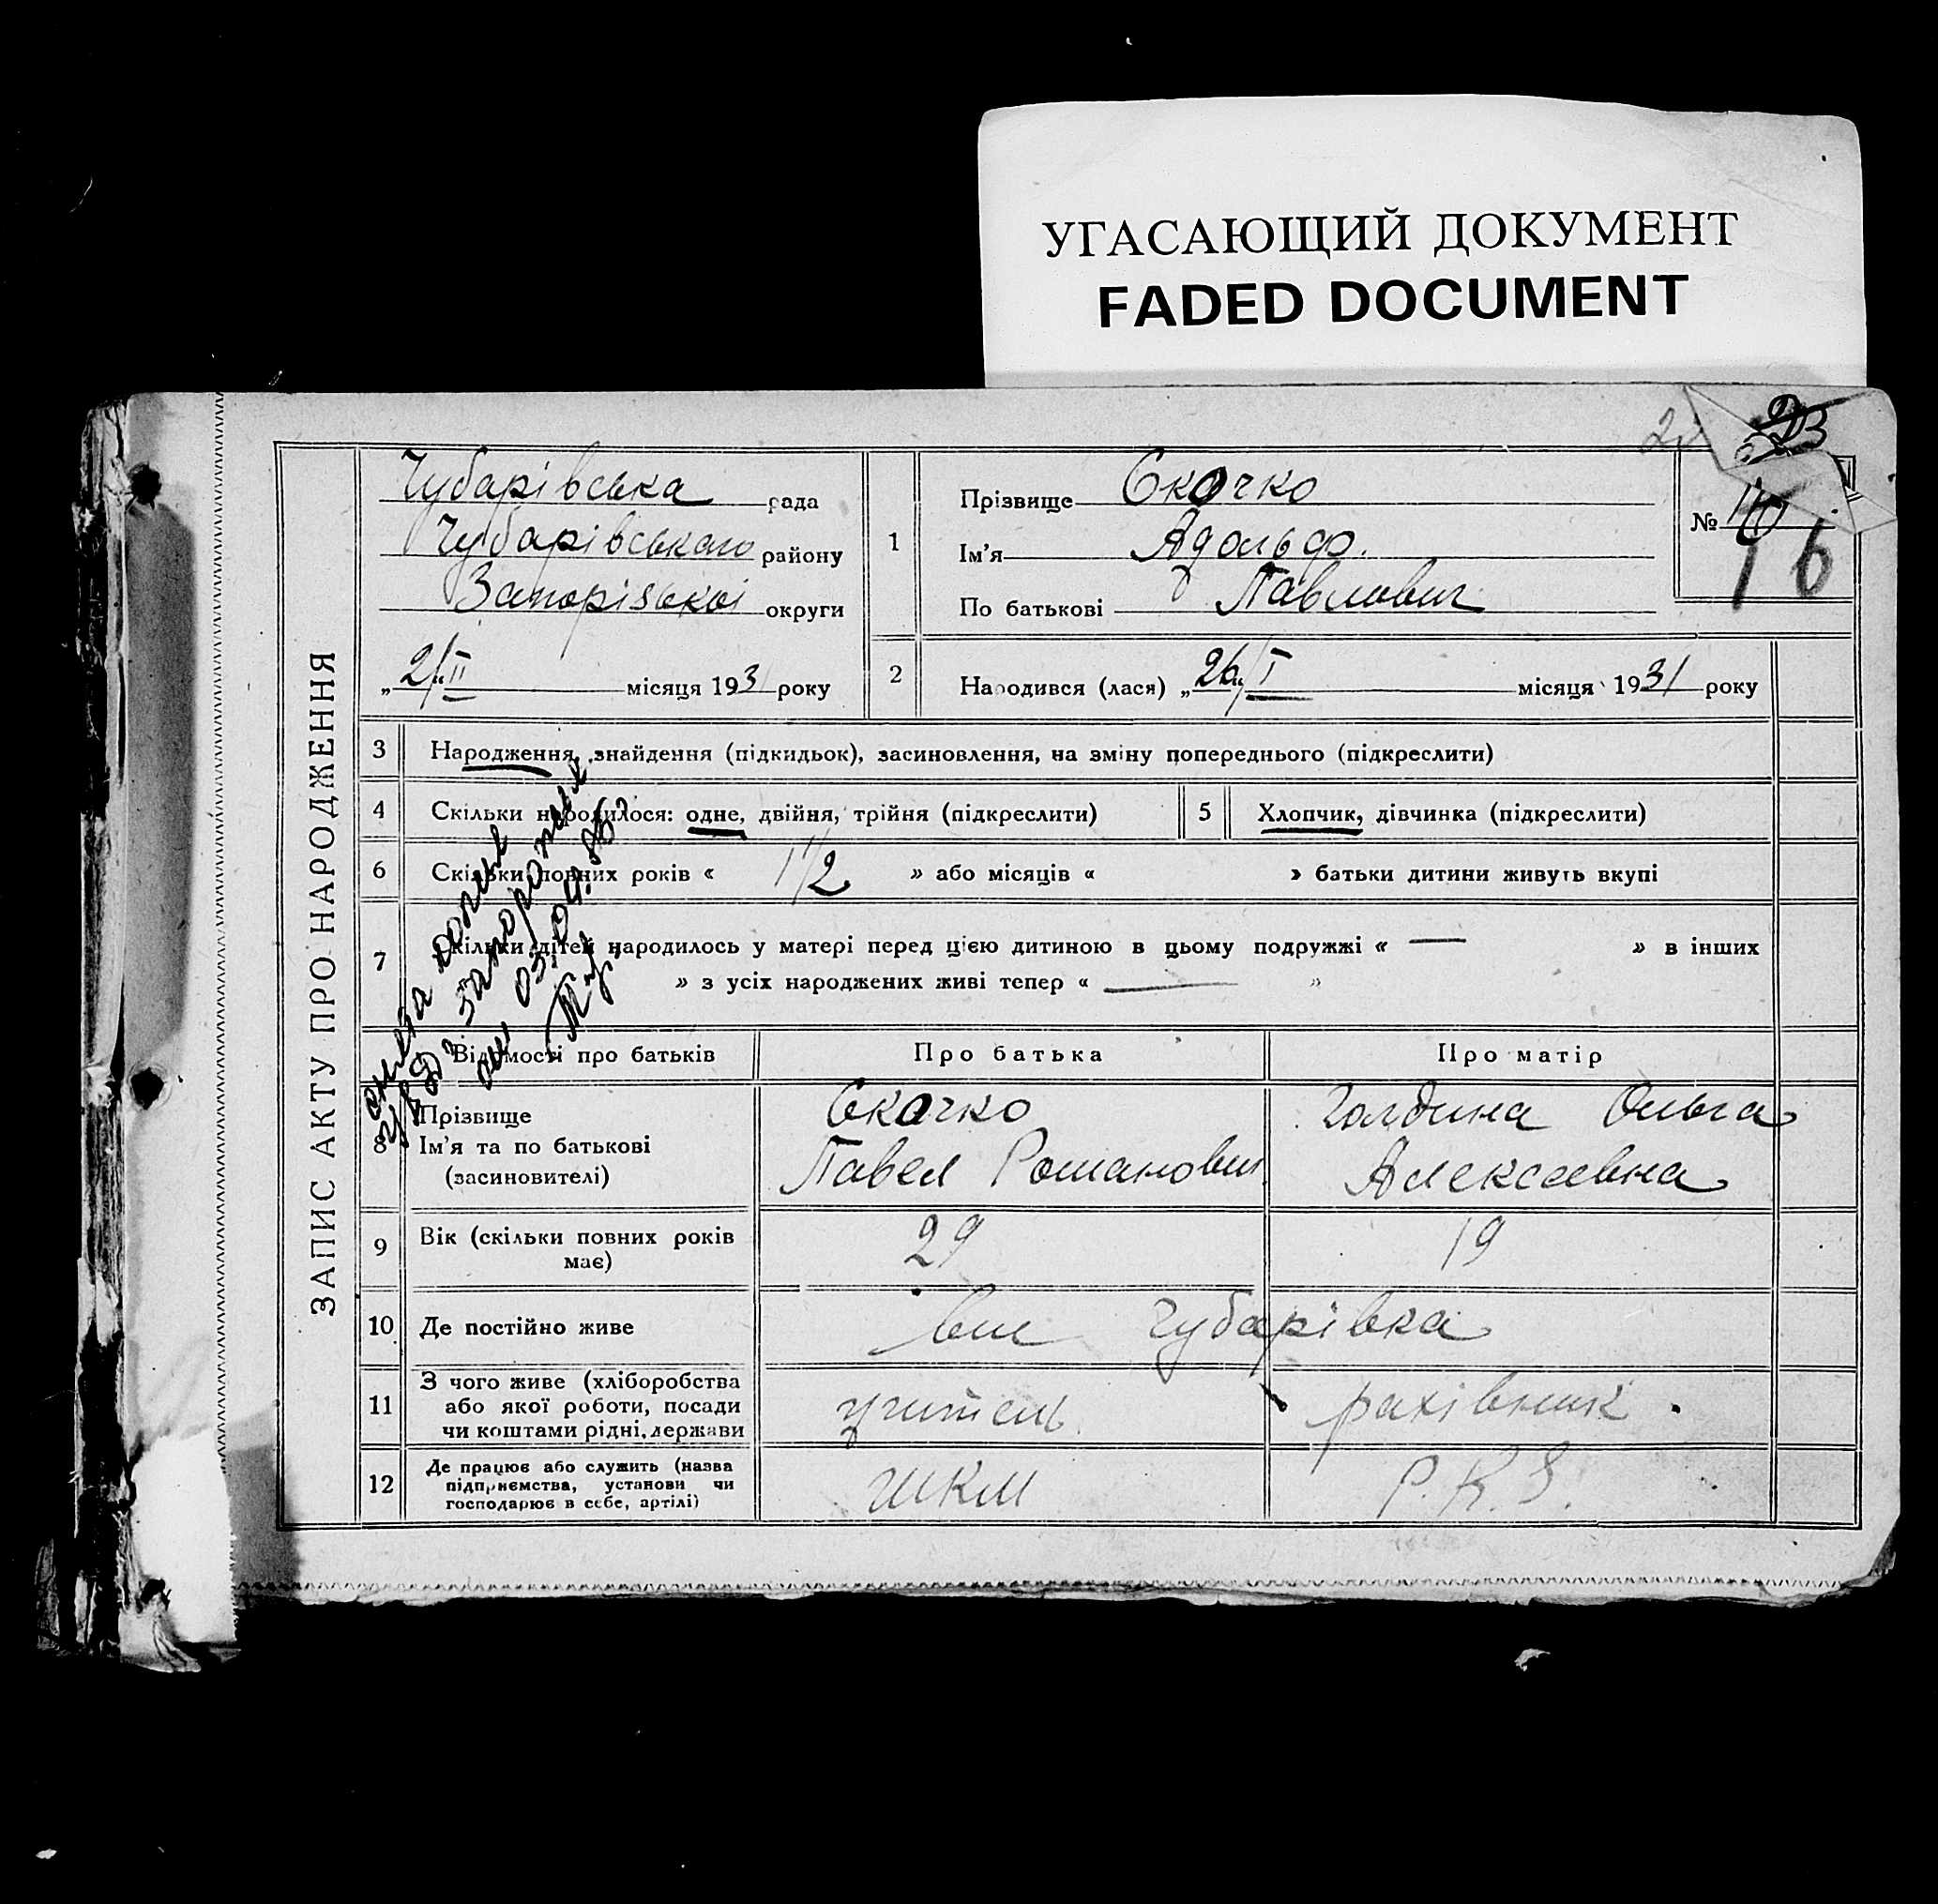 УГАСАЮЩИЙ ДОКУМЕНТ
FADED DOCUMENT
23
ЗАПИС АКТУ ПРО НАРОДЖЕННЯ
Чубарівська рада
Чубарівського району
Запорізької округи
„2/„ II місяця 1931 року
1
Прізвище Скочко
Ім'я Адольф.
По батькові Павлович
№ 10
16
2
Народився (лася) „26„ I місяця 1931 року
3 Народження, знайдення (підкидьок), засиновлення, на зміну попереднього (підкреслити)
4 Скільки народилося: одне, двійня, трійня (підкреслити)
5 Хлопчик, дівчинка (підкреслити)
6 Скільки повних років « 1 1/2 » або місяців « » батьки дитини живуть вкупі
7 Скільки дітей народилось у матері перед цією дитиною в цьому подружжі « — » в інших
» з усіх народжених живі тепер « — »
Відомості про батьків Про батька Про матір
8 Прізвище
Ім'я та по батькові
(засиновителі)
Скочко
Павел Романович
Голдина Ольга
Алексеевна
9 Вік (скільки повних років має) 29 19
10 Де постійно живе Чубарівка
11 З чого живе (хліборобства
або якої роботи, посади
чи коштами рідні, держави
учитель рахівник
12 Де працює або служить (назва
підприємства, установи чи
господарює в себе, артілі)
ШКМ Р.К.S.